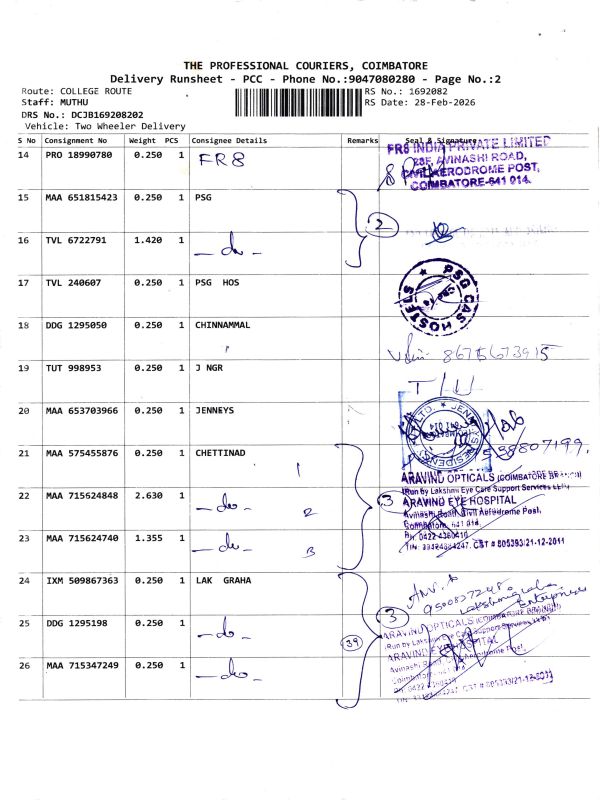 THE PROFESSIONAL COURIERS, COIMBATORE
Delivery Runsheet - PCC - Phone No.:9047080280 - Page No.:2
Route: COLLEGE ROUTE
RS No.: 1692082
Staff: MUTHU
RS Date: 28-Feb-2026
DRS No.: DCJB169208202
Vehicle: Two Wheeler Delivery
S No Consignment No Weight PCS Consignee Details Remarks Seal & Signature
14 PRO 18990780 0.250 1 FR8
FR8 INDIA PRIVATE LIMITED
AVINASHI ROAD,
CIVIL AERODROME POST,
COIMBATORE-641 014.
15 MAA 651815423 0.250 1 PSG
2
16 TVL 6722791 1.420 1 -do-
17 TVL 240607 0.250 1 PSG HOS
PSG CAS HOSTELS
18 DDG 1295050 0.250 1 CHINNAMMAL
8675673915
19 TUT 998953 0.250 1 J NGR
20 MAA 653703966 0.250 1 JENNEYS
21 MAA 575455876 0.250 1 CHETTINAD 1
22 MAA 715624848 2.630 1 -do- 2
3
23 MAA 715624740 1.355 1 -do- 3
ARAVIND OPTICALS (COIMBATORE BRANCH)
(Run by Lakshmi Eye Care Support Services LLP)
ARAVIND EYE HOSPITAL
Avinashi Road, Civil Aerodrome Post,
Coimbatore, 641 014.
Ph: 0422 4360410
24 IXM 509867363 0.250 1 LAK GRAHA
Enterprises
25 DDG 1295198 0.250 1 -do-
3
39
26 MAA 715347249 0.250 1 -do-
ARAVIND OPTICALS (COIMBATORE BRANCH)
(Run by Lakshmi Eye Care Support Services LLP)
ARAVIND EYE HOSPITAL